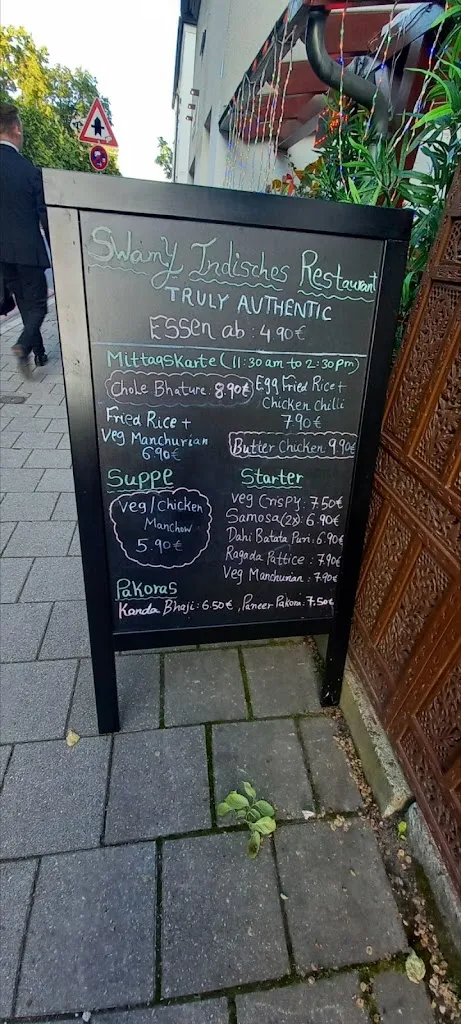 Swamy Indisches Restaurant
TRULY AUTHENTIC
Essen ab : 4.90€
Mittagskarte (11:30 am to 2:30 pm)
Chole Bhature : 8.90€
Fried Rice +
Veg Manchurian
6.90€
Egg Fried Rice +
Chicken Chilli
7.90€
Butter Chicken 9.90€
Suppe
Veg / Chicken
Manchow
5.90€
Starter
Veg Crispy : 7.50€
Samosa (2x) : 6.90€
Dahi Batata Puri : 6.90€
Ragada Pattice : 7.90€
Veg Manchurian : 7.90€
Pakoras
Kanda Bhaji : 6.50€, Paneer Pakora : 7.50€